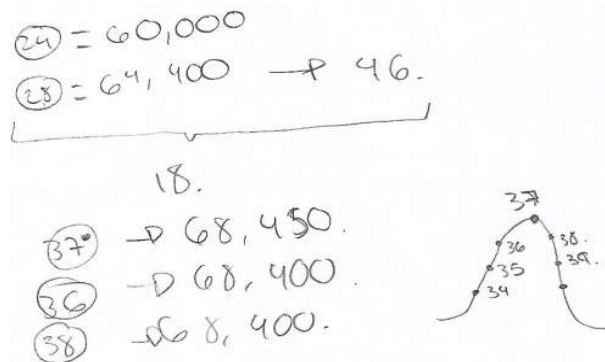 24 = 60,000
28 = 64,400 → 46.
18.
37 → 68,450.
36 → 68,400.
38 → 68,400.
37
36
38.
35
39.
34